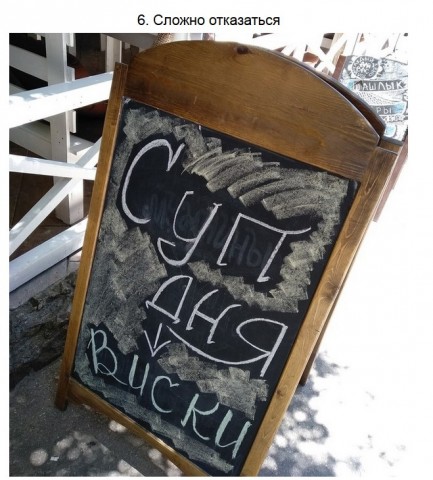 6. Сложно отказаться
ШАШЛЫК
СУП
ДНЯ
ВИСКИ